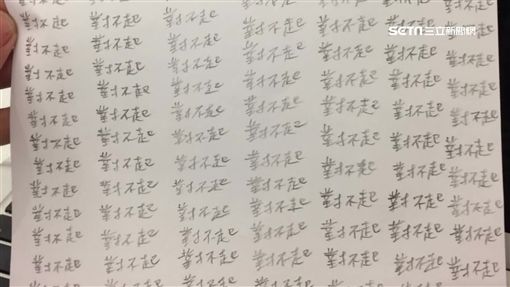 SETN三立新聞網
對不起 對不起 對不起 對不起 對不起 對不起 對不起
對不起 對不起 對不起 對不起 對不起 對不起 對不起
對不起 對不起 對不起 對不起 對不起 對不起 對不起
對不起 對不起 對不起 對不起 對不起 對不起 對不起
對不起 對不起 對不起 對不起 對不起 對不起 對不起
對不起 對不起 對不起 對不起 對不起 對不起 對不起
對不起 對不起 對不起 對不起 對不起 對不起 對不起
對不起 對不起 對不起 對不起 對不起 對不起 對不起
對不起 對不起 對不起 對不起 對不起 對不起 對不起
對不起 對不起 對不起 對不起 對不起 對不起 對不起
對不起 對不起 對不起 對不起 對不起 對不起 對不起